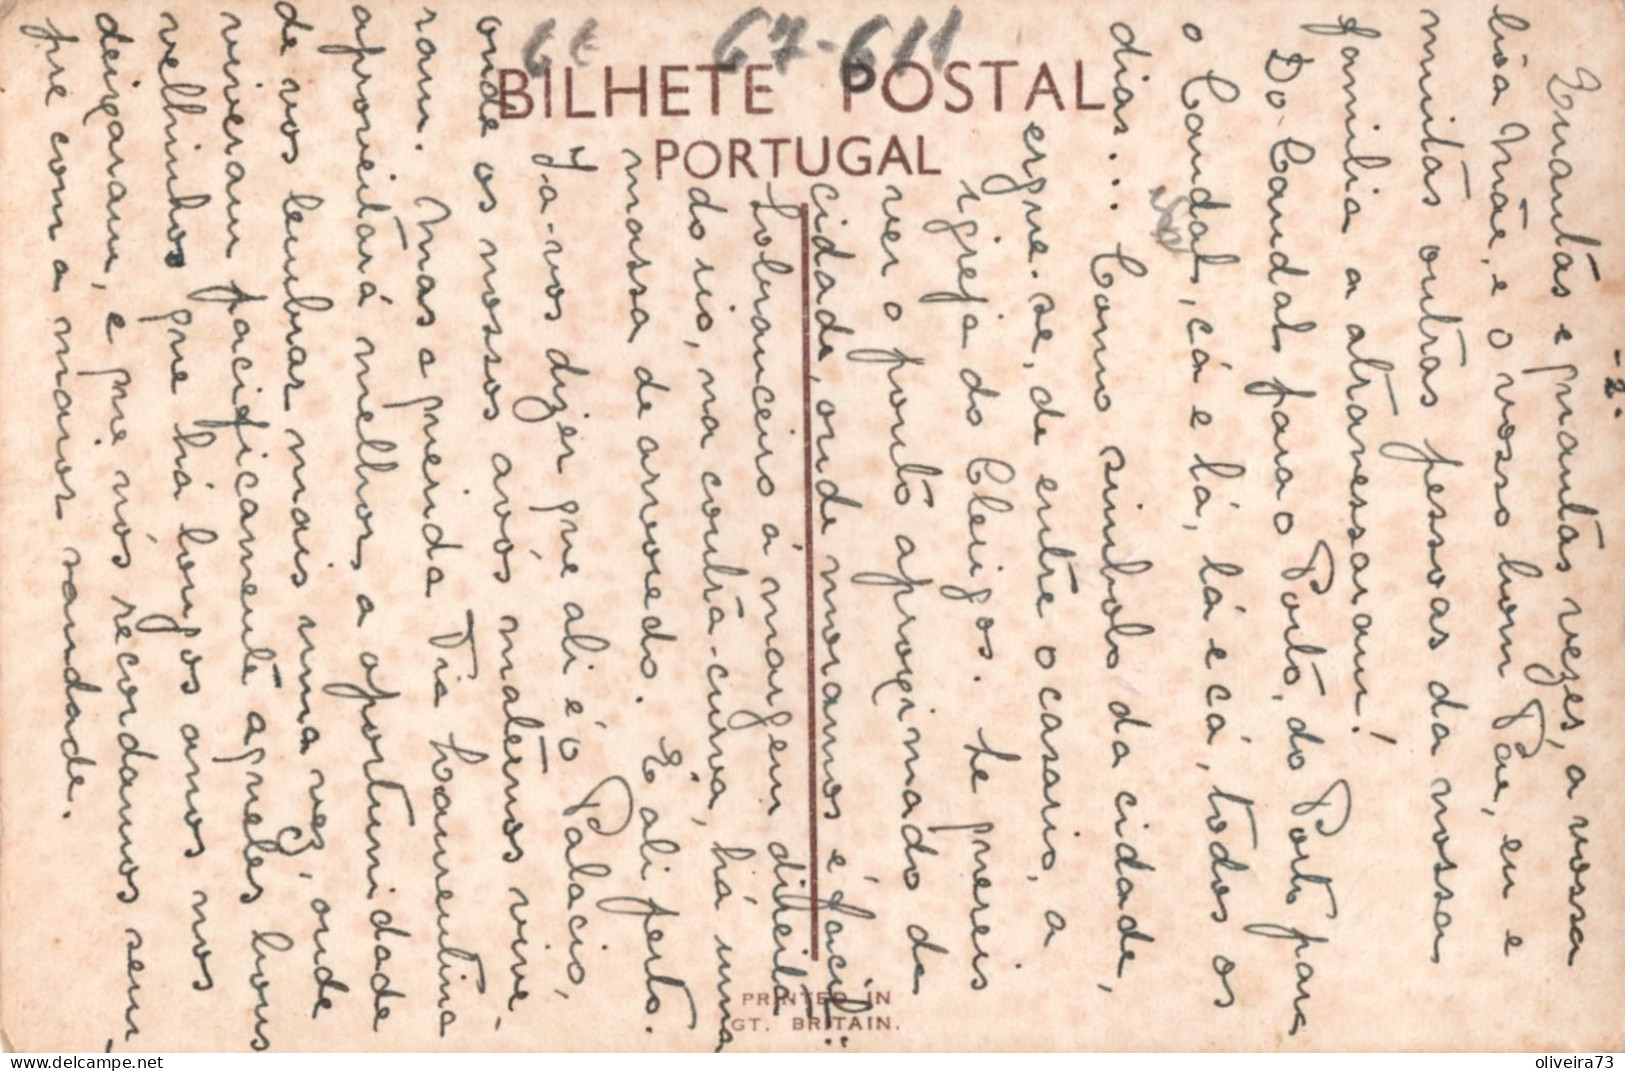 -2-
Quantas e quantas vezes, a vossa
bôa Mãe, e o vosso bom Pae, eu e
muitas outras pessoas da nossa
familia a atravessaram!
Do Candal para o Porto, do Porto para
o Candal, cá e lá, lá e cá, todos os
dias... Como simbolo da cidade,
ergue-se, de entre o casario, a
igreja do Cleigos. Se quereis
ver o ponto aproximado da
cidade, onde moramos é fácil:
Sobranceiro á margem direita
do rio, na contra-curva, há uma
massa de arvoredo. E ali perto.
Ja-vos dizer que ali é o Palacio,
onde os nossos avós maternos vive-
ram. Mas a querida Tia Laurentina
aproveitará melhor, a oportunidade
de vos lembrar mais uma vez, onde
viveram pacificamente aqueles bons
velhinhos que há longos anos nos
deixaram, e que nós recordamos sem-
pre com a maior saudade.
66 67-611
BILHETE POSTAL
PORTUGAL
PRINTED IN
GT. BRITAIN.
oliveira73